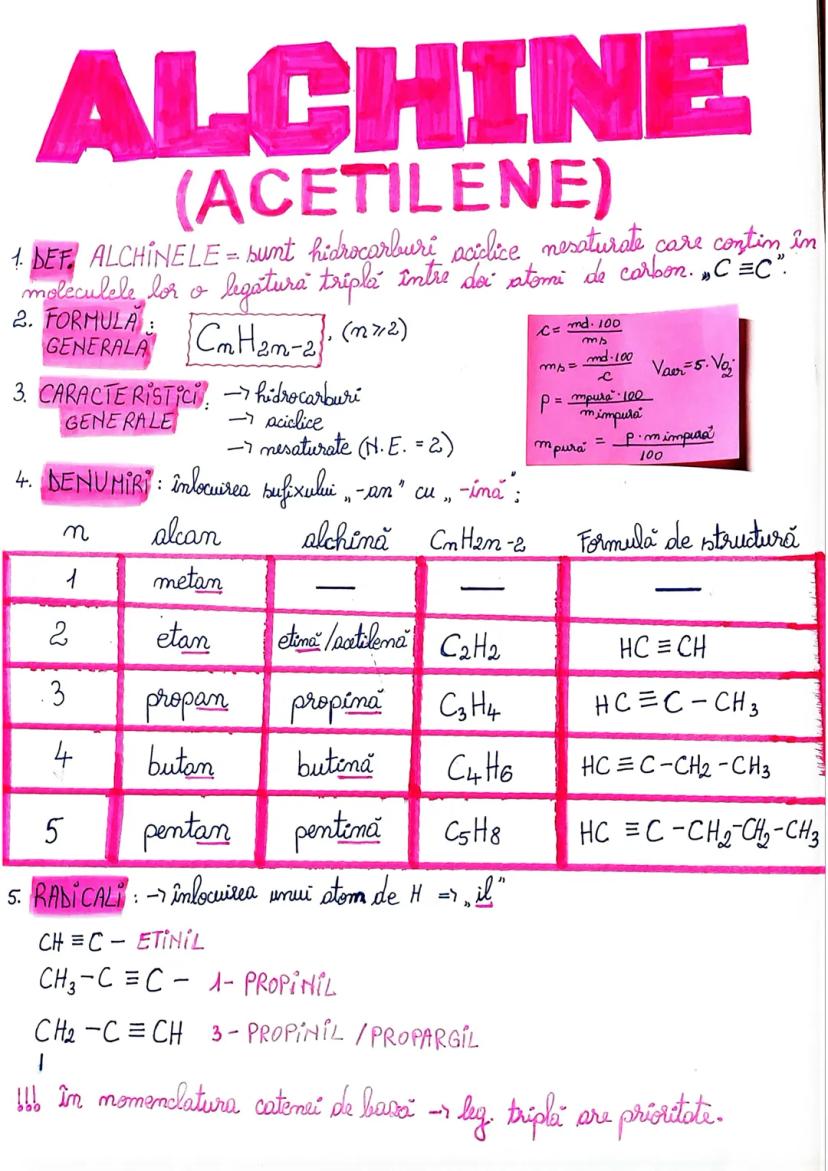 ALCHINE
(ACETILENE)
1. DEF. ALCHINELE = sunt hidrocarburi aciclice nesaturate care conțin în
moleculele lor o legătură triplă între doi atomi de carbon. „C ≡C”.
2. FORMULĂ GENERALĂ : CnH2n-2 , (n≥2)
c = md·100 / ms
ms = md·100 / c
Vaer=5·VO2
p = mpură·100 / mimpură
mpură = p·mimpură / 100
3. CARACTERISTICI GENERALE : → hidrocarburi
→ aciclice
→ nesaturate (N.E. = 2)
4. DENUMIRI : înlocuirea sufixului „-an” cu „-ină”;
n alcan alchină CnH2n-2 Formulă de structură
1 metan — — —
2 etan etină/acetilenă C2H2 HC ≡ CH
3 propan propină C3H4 HC ≡ C – CH3
4 butan butină C4H6 HC ≡ C-CH2-CH3
5 pentan pentină C5H8 HC ≡ C-CH2-CH2-CH3
5. RADICALI : → înlocuirea unui atom de H => „il”
CH ≡ C – ETINIL
CH3-C ≡ C – 1- PROPINIL
CH2 -C ≡ CH 3 - PROPINIL / PROPARGIL
|
!!! în nomenclatura catenei de bază → leg. triplă are prioritate.